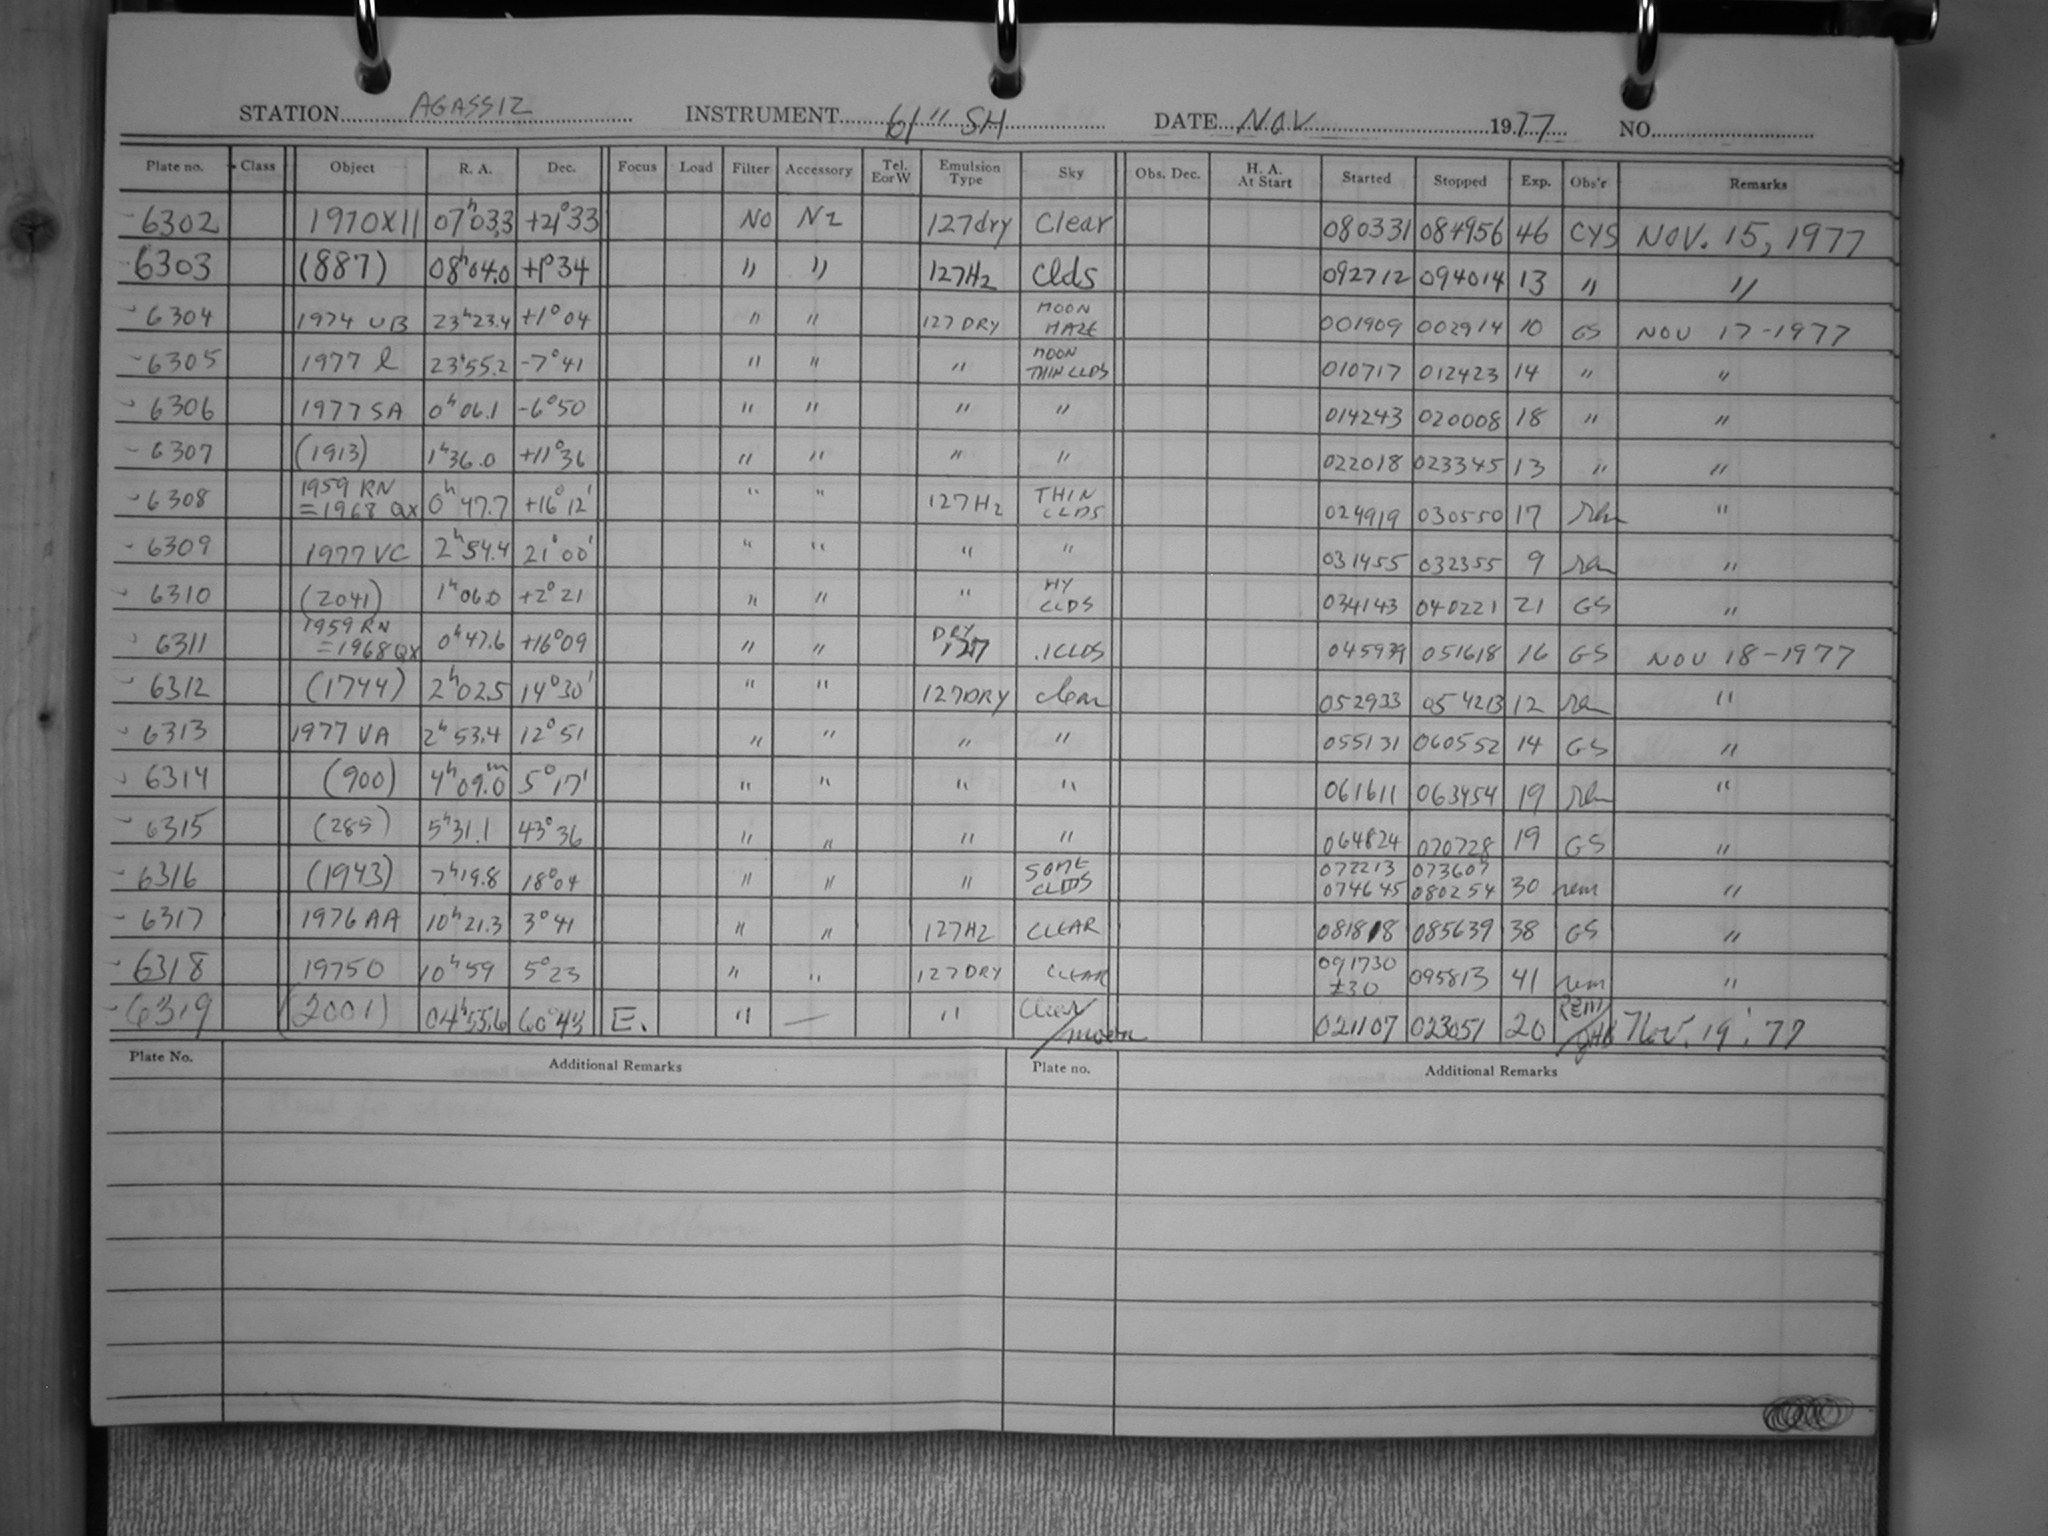 STATION AGASSIZ INSTRUMENT 61" SH DATE NOV 1977 NO.
Plate no. Class Object R. A. Dec. Focus Load Filter Accessory Tel. E or W Emulsion Type Sky Obs. Dec. H. A. At Start Started Stopped Exp. Obs'r Remarks
6302 1970XII 07h03.3 +21°33 NO N2 127dry Clear 080331 084956 46 CYS NOV. 15, 1977
6303 (887) 08h04.0 +1°34 " " 127H2 Clds 092712 094014 13 " "
6304 1974 UB 23h23.4 +1°04 " " 127 DRY MOON HAZE 001909 002914 10 GS NOV 17-1977
6305 1977 l 23h55.2 -7°41 " " " MOON THIN CLDS 010717 012423 14 " "
6306 1977 SA 0h06.1 -6°50 " " " " 014243 020008 18 " "
6307 (1913) 1h36.0 +11°36 " " " " 022018 023345 13 " "
6308 1959 RN =1968 QX 0h47.7 +16°12' " " 127H2 THIN CLDS 024919 030550 17 rem "
6309 1977 VC 2h54.4 21°00' " " " " 031455 032355 9 rem "
6310 (2041) 1h06.0 +2°21 " " " HY CLDS 034143 040221 21 GS "
6311 1959 RN =1968QX 0h47.6 +16°09 " " DRY 127 .1CLDS 045939 051618 16 GS NOV 18-1977
6312 (1744) 2h02.5 14°30' " " 127DRY clear 052933 054213 12 rem "
6313 1977 VA 2h53.4 12°51 " " " " 055131 060552 14 GS "
6314 (900) 4h09.0m 5°17' " " " " 061611 063454 19 rem "
6315 (285) 5h31.1 43°36 " " " " 064824 070728 19 GS "
6316 (1943) 7h19.8 18°04 " " " SOME CLDS 072213 073607 074645 080254 30 rem "
6317 1976 AA 10h21.3 3°41 " " 127H2 CLEAR 081818 085639 38 GS "
6318 1975O 10h59 5°23 " " 127DRY CLEAR 091730 ±30 095813 41 rem "
6319 (2001) 04h55.6 60°43 E. " — " Clear/moon 021107 023051 20 REM/ Nov. 19 '77
Plate No. Additional Remarks Plate no. Additional Remarks